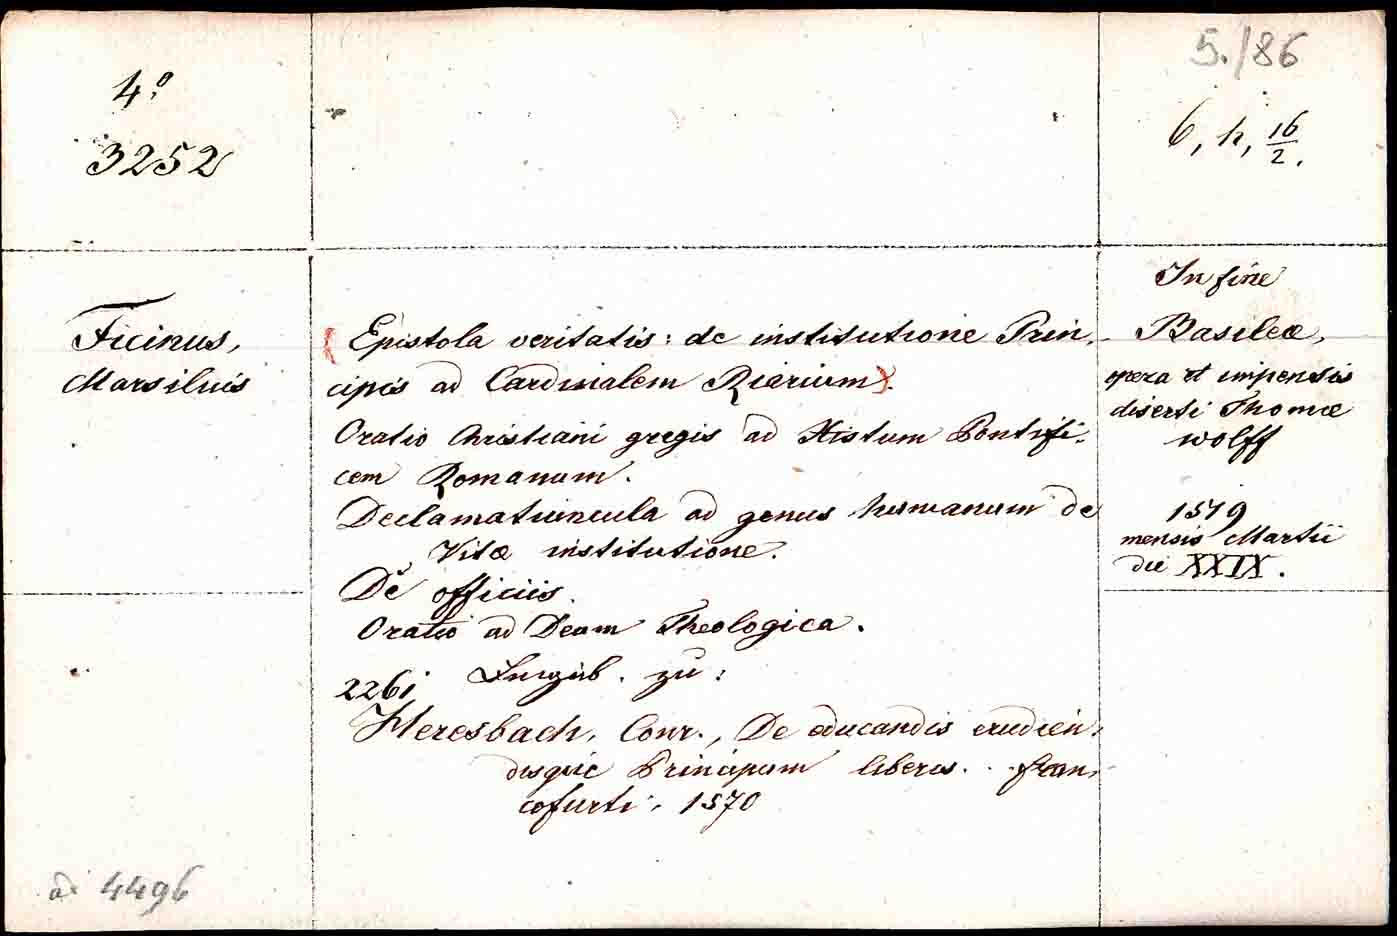 4º
3252
5./86
6, h, 16/2.
Ficinus,
Marsilius
Epistola veritatis: de institutione Prin-
cipis ad Cardinalem Riarium).
Oratio Christiani gregis ad Xistum Pontifi-
cem Romanum.
Declamatiuncula ad genus humanum de
Vitæ institutione.
De officiis.
Oratio ad Deum Theologica.
2261
zu:
Heresbach, Conr., De educandis erudien-
disque Principum liberis . . Fran-
cofurti, 1570
In fine
Basileæ,
opera et impensis
diserti Thomæ
Wolff
1519
mensis Martii
die XXIX.
ad 4496